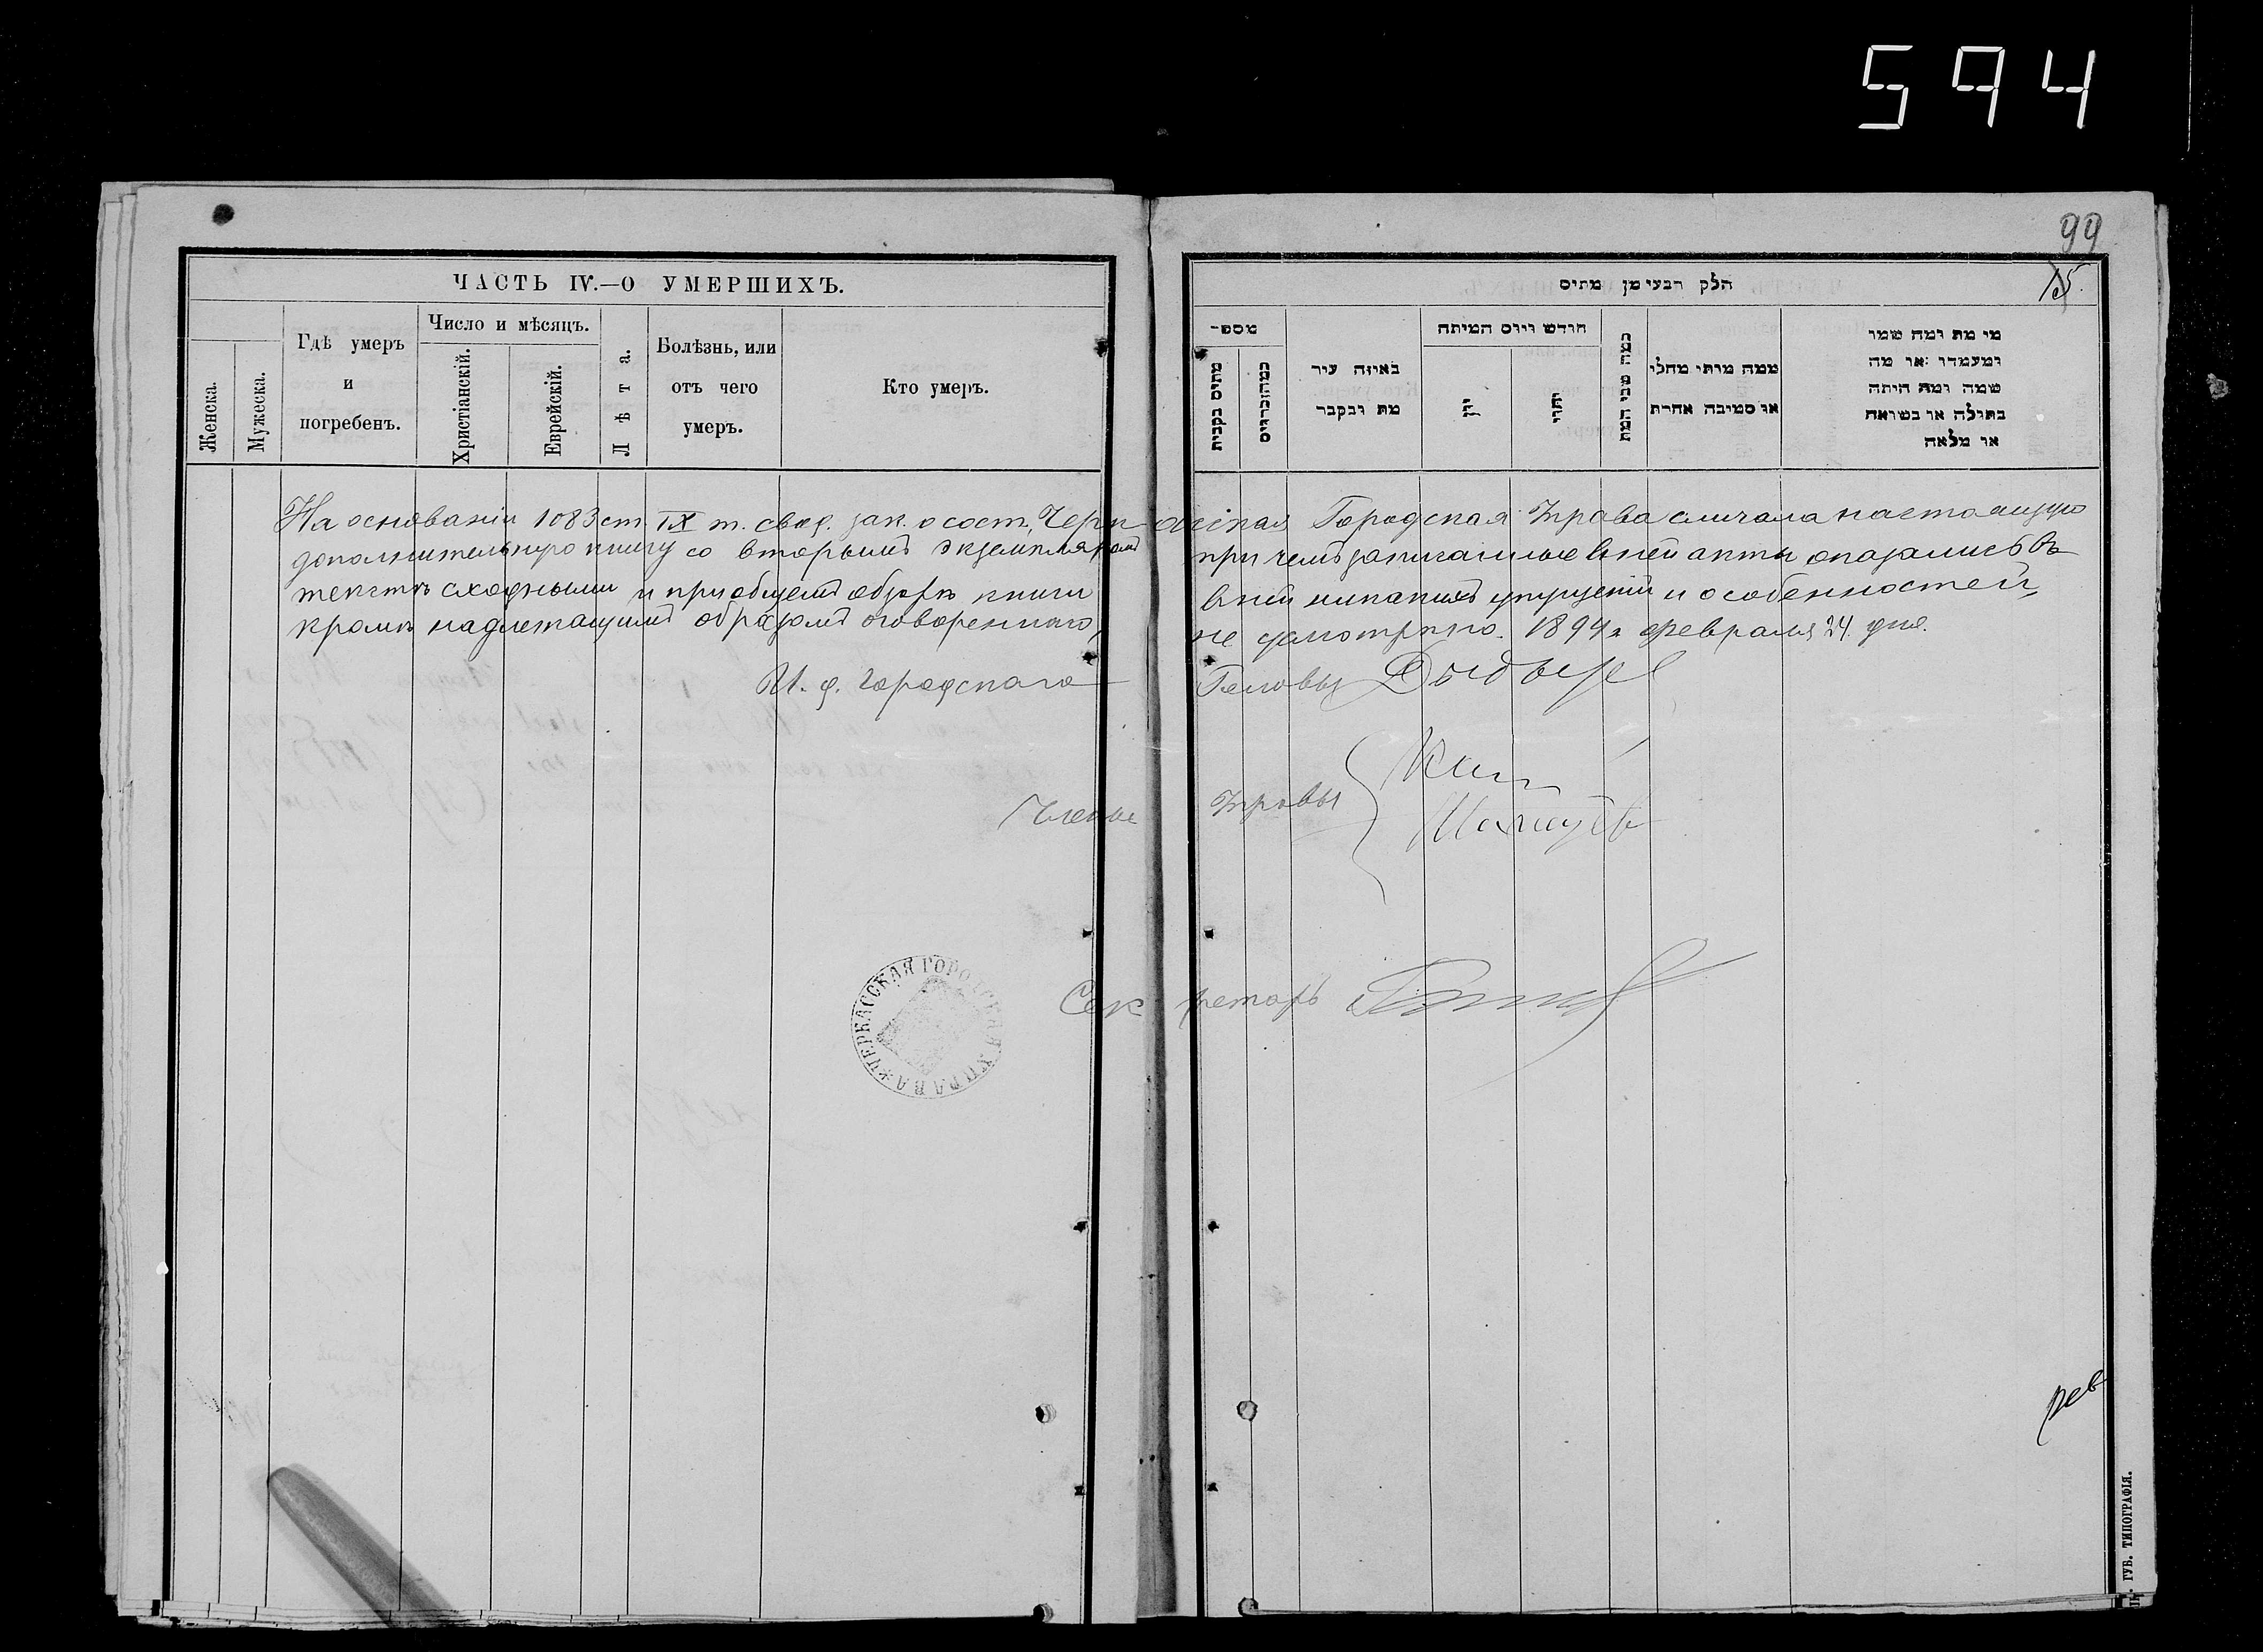 594
99
15.
ЧАСТЬ IV.—О УМЕРШИХЪ.
Женска.
Мужеска.
Гдѣ умеръ
и
погребенъ.
Число и мѣсяцъ.
Христіанскій.
Еврейскій.
Лѣта.
Болѣзнь, или
отъ чего
умеръ.
Кто умеръ.
חלק רבעי מן מתים
מספ־
מתים בקבית
באיזה עיר
מת ונקבר
חודש ויום המיתה
כמה שני המת
ממה מותי מחלי
או סטיבה אחרת
מי מת ומה שמו
ומעמדו או מה
שמה ומה היתה
בתולה או בשואה
או מלאה
На основаніи 1083 ст. IX т. свод. зак. о сост. Черкасская Городская Управа сличала настоящую
дополнительную книгу со вторымъ экземпляромъ при чемъ записанные в ней акты оказались въ
текстѣ сходными и при общемъ обзорѣ книги в ней никакихъ упущеній и особенностей,
кромѣ надлежащимъ образомъ оговореннаго, не усмотрѣно. 1894 г. февраля 24 дня.
И. д. Городского Головы
Члены Управы
Секретарь
ЧЕРКАССКАЯ ГОРОДСКАЯ УПРАВА
рев
ГУБ. ТИПОГРАФІЯ.